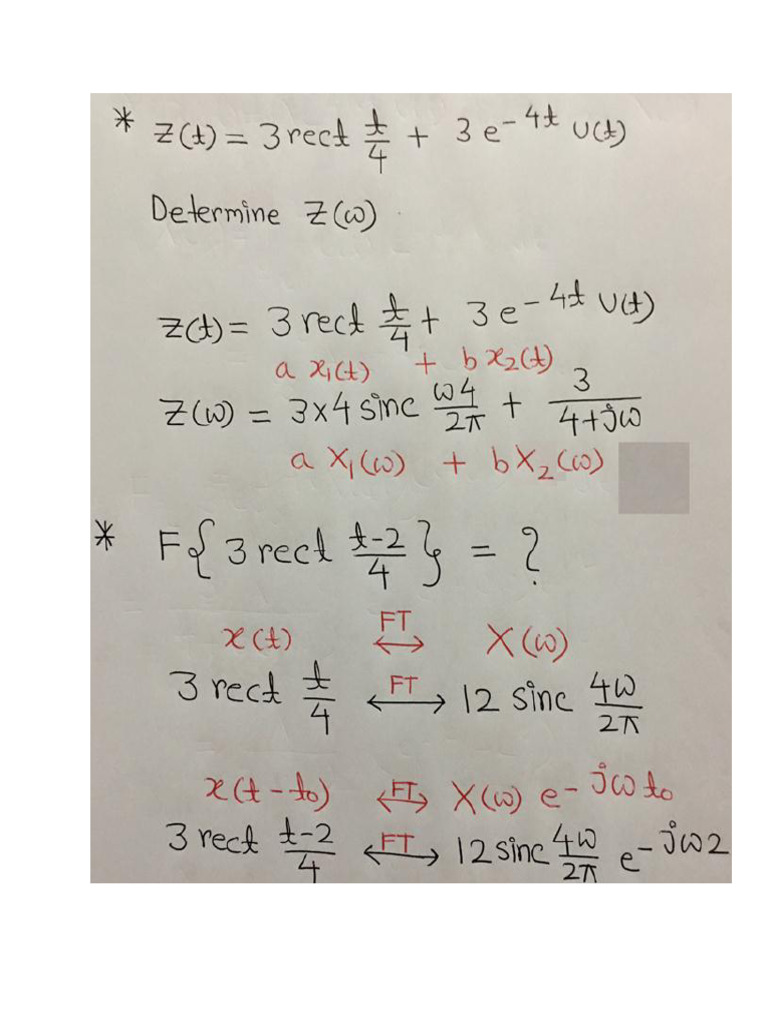 * Z(t) = 3 rect t/4 + 3 e^{-4t} U(t)
Determine Z(ω)
Z(t) = 3 rect t/4 + 3 e^{-4t} U(t)
a x₁(t) + b x₂(t)
Z(ω) = 3×4 sinc ω4/2π + 3/(4+jω)
a X₁(ω) + b X₂(ω)
* F{3 rect (t-2)/4} = ?
x(t) ⟷ FT X(ω)
3 rect t/4 ⟷ FT 12 sinc 4ω/2π
x(t - t₀) ⟷ FT X(ω) e^{-jωt₀}
3 rect (t-2)/4 ⟷ FT 12 sinc 4ω/2π e^{-jω2}